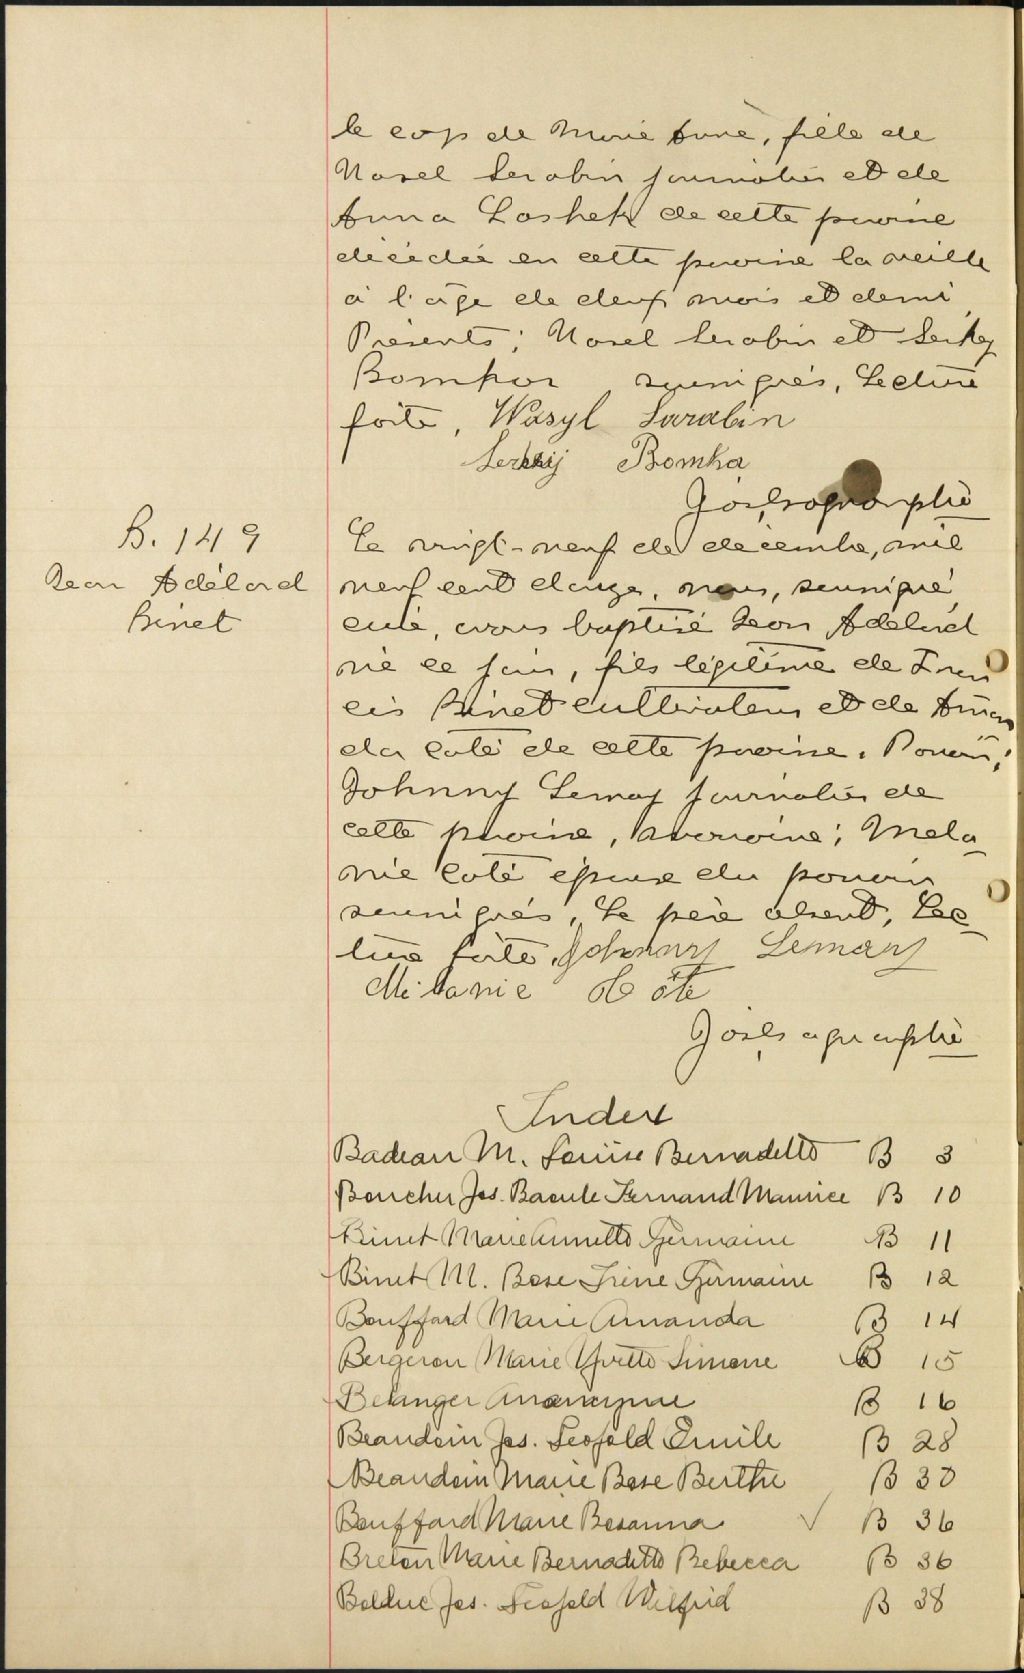 le corp de Marie Anne, fille de
Nasel Serabin journalier et de
Anna Lashek de cette paroisse
décédée en cette paroisse la veille
à l'âge de deux mois et demi
Présents; Nasel Serabin et Serkey
Bomkar soussignés, Lecture
faite, Wasyl Sarabin
Serhij Bomka
B. 149
Jean Adélard
Binet
Le vingt-neuf de décembre, mil
neuf cent douze, nous, soussigné
curé, avons baptisé Jean Adelard
né ce jour, fils légitime de Fran
cis Binet cultivateur et de Aman
da Coté de cette paroisse. Parrain;
Johnny Lemay journalier de
cette paroisse, marraine; Mela-
nie Coté épouse du parrain
soussignés, Le père absent, Lec-
ture faite, Johnny Lemay
Mélanie Côté
Index
Badeau M. Louise Bernadette B 3
Boucher Jos. Raoule Fernand Maurice B 10
Binet Marie Annette Germaine B 11
Binet M. Rose Irène Germaine B 12
Bouffard Marie Amanda B 14
Bergeron Marie Yvette Simone B 15
Belanger Anonyme B 16
Beaudoin Jos. Leopold Emile B 28
Beaudoin Marie Rose Berthe B 30
Bouffard Marie Rosanna ✓ B 36
Breton Marie Bernadette Rebecca B 36
Bolduc Jos. Leopold Wilfrid B 38